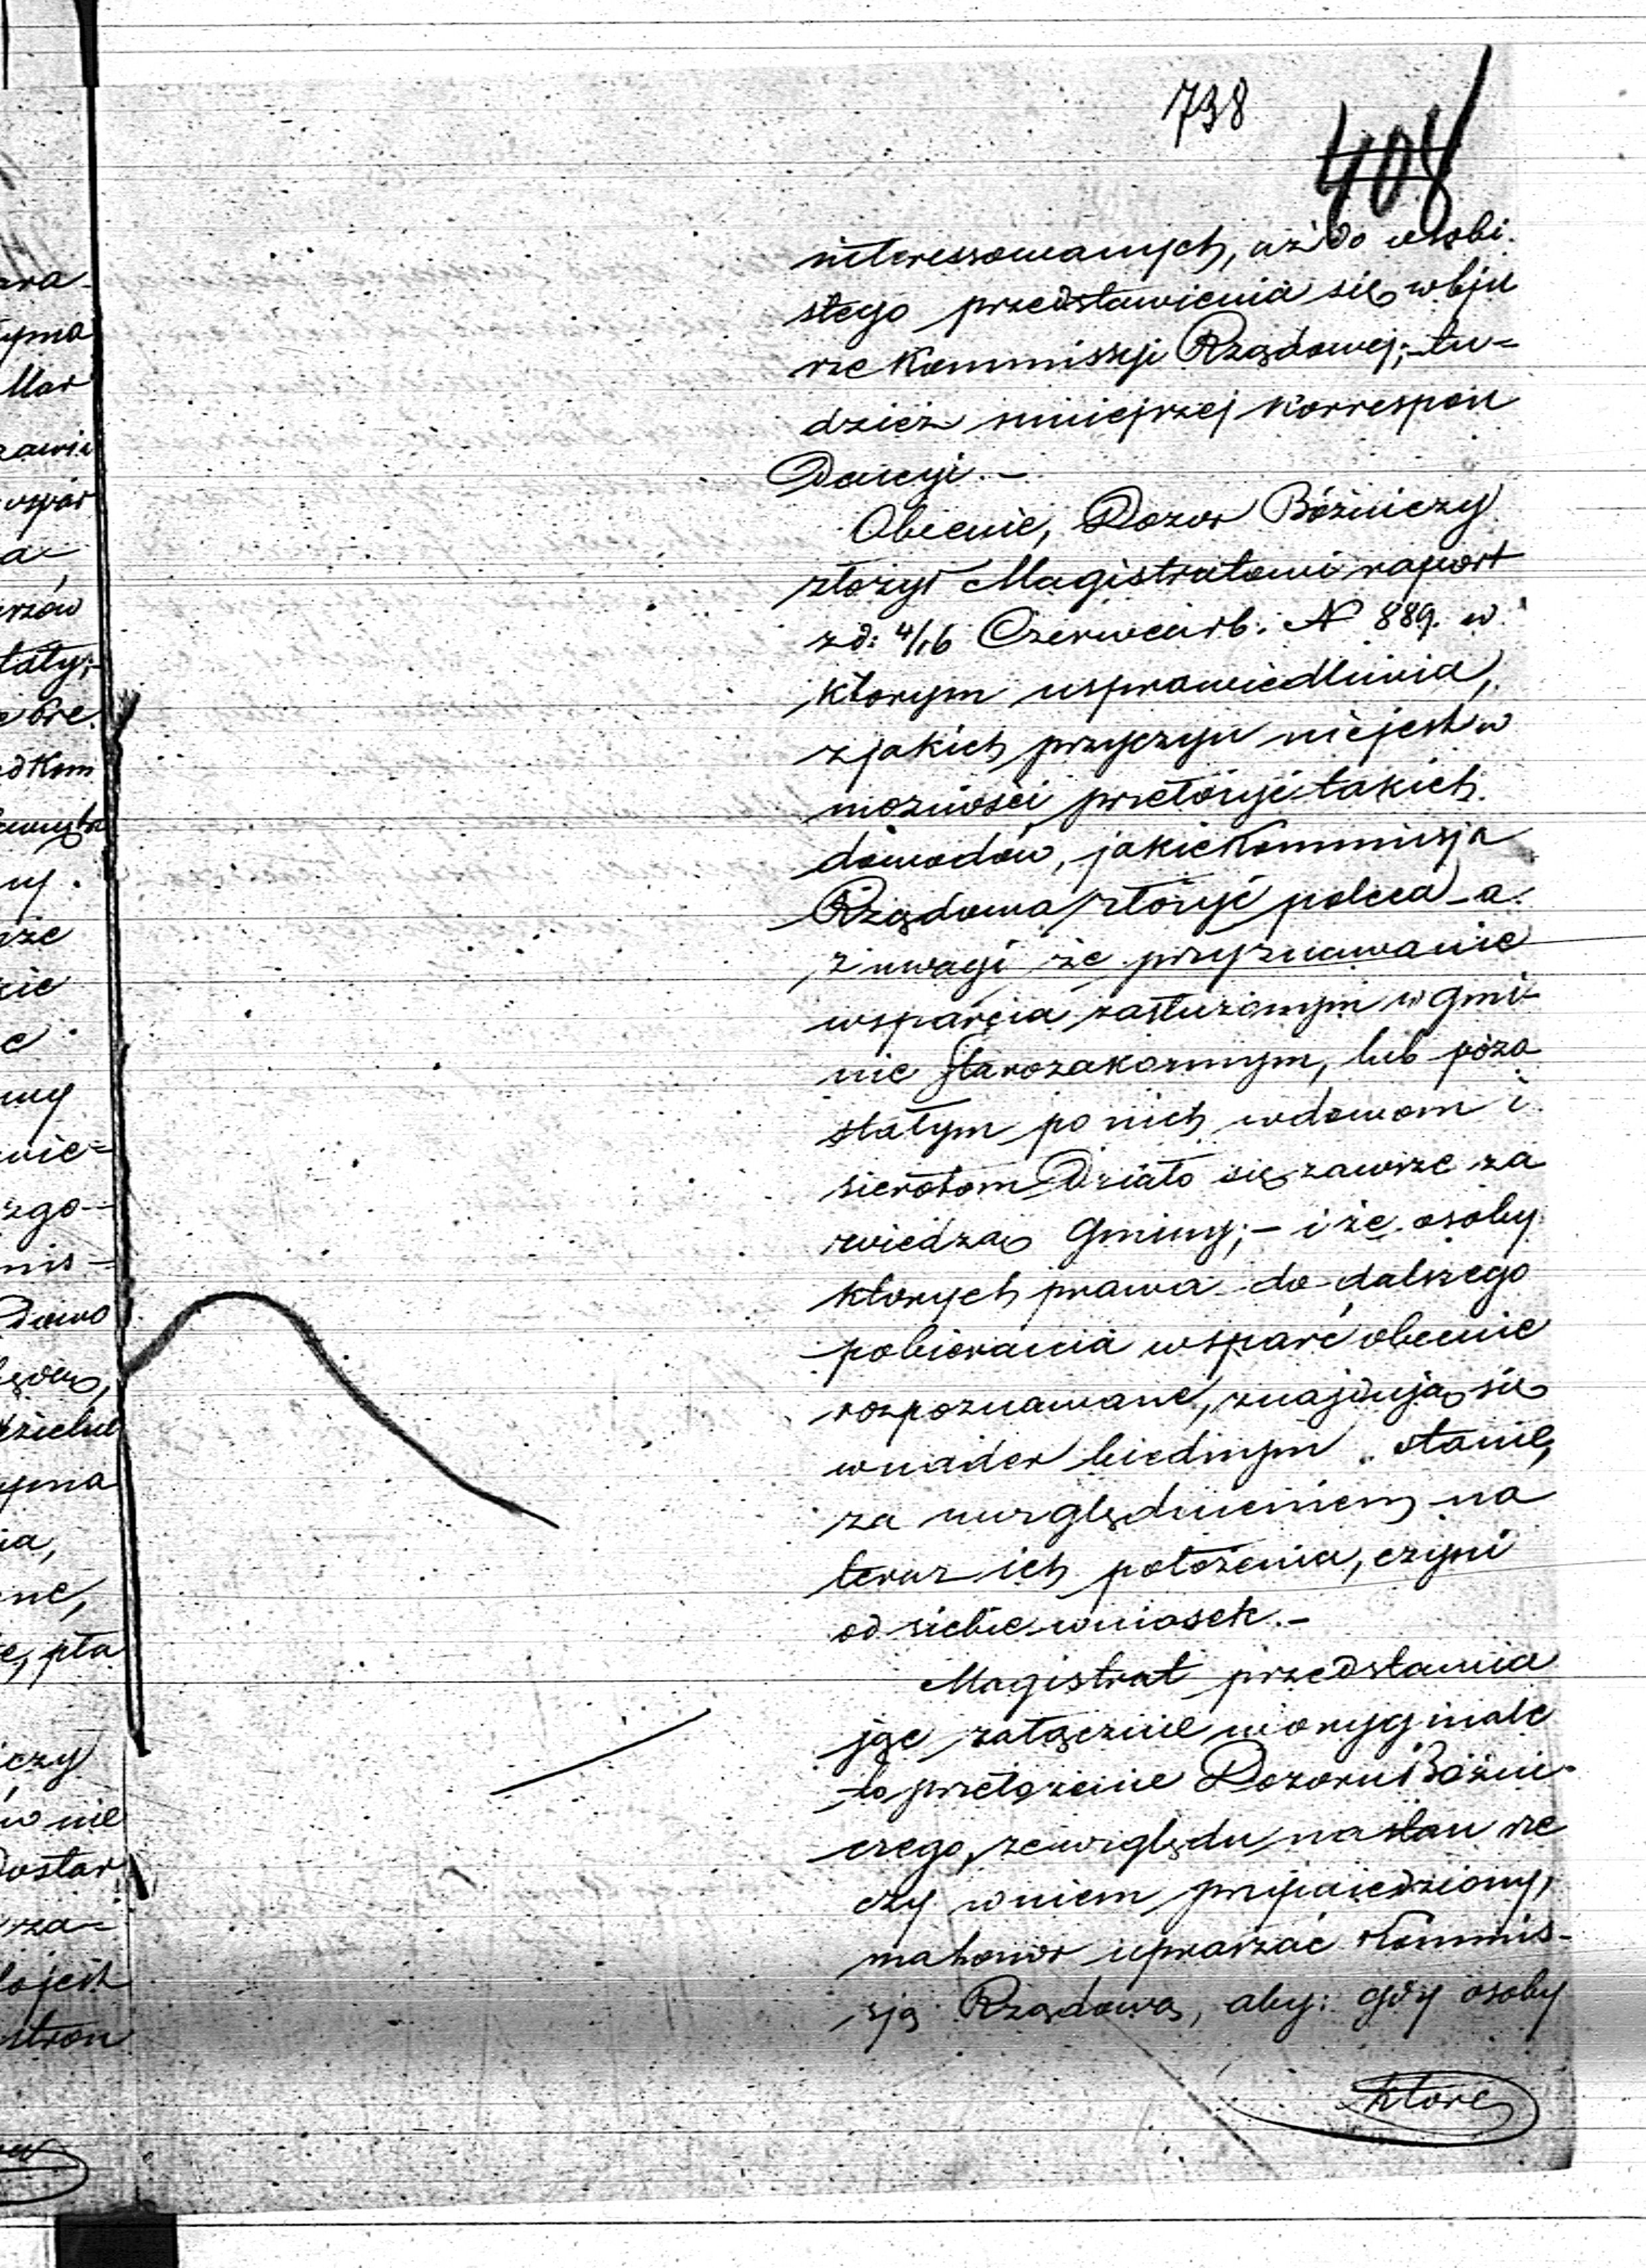 738
408
interessowanych, aż do osobi.
stego przedstawienia się w bju
rze Kommissyi Rządowej; tu=
dzież niniejszej Korrespon
dencyi. –
Obecnie, Dozor Bóżniczy
złożył Magistratowi raport
z d: 4/16 Czerwca r b. N 889. w
ktorym usprawiedliwia,
z jakich przyczyn nie jest w
możności przełożyć takich
dowodów, jakie Kommissja
Rządowa złożyć poleca – a
z uwagi że przyznawanie
wsparcia zasłużonym w gmi-
nie Starozakonnym, lub pozo
stałym po nich wdowom i
sierotom Działo się zawsze za
wiedzą Gminy; – i że osoby
ktorych prawa do dalszego
pobierania wsparć obecnie
rozpoznawane, znajdują się
w nader biednym stanie,
za uwzględnieniem na
teraz ich położenia, czyni
od siebie wniosek. –
Magistrat przedstawia
jąc załącznie w oryginale
to przełożenie Dozoru Bóżni-
czego, ze względu na stan rze
czy w niem przywiedziony,
ma honor upraszać Kommis-
sją Rządową, aby: gdy osoby
ktore
ara-
ypna
Mar
zawia
wspar
a-
arzów
łaty;-
dKom
ny.
że
kie
ny
wie=
zgo-
mis-
Dowo
ypna
ia,
ne,
e, pła
iczy
w nie
Dostar
za-
to jest
stron